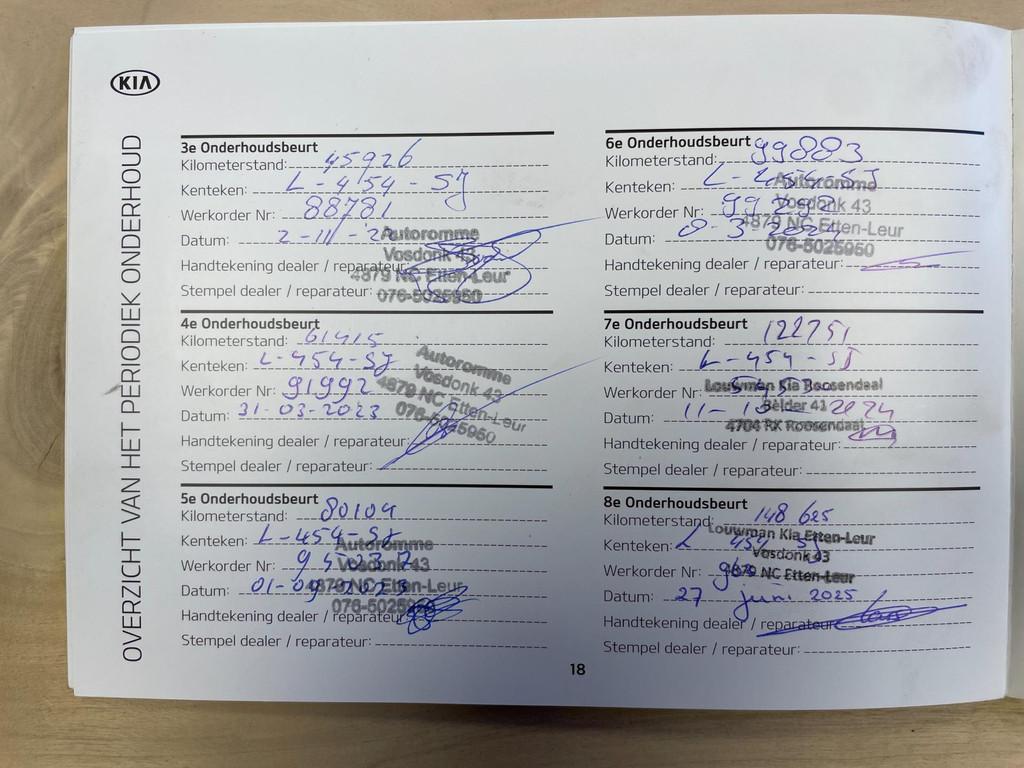 KIA
OVERZICHT VAN HET PERIODIEK ONDERHOUD
3e Onderhoudsbeurt
Kilometerstand: 45926
Kenteken: L-454-SJ
Werkorder Nr: 88781
Datum: 2-11-22
Handtekening dealer / reparateur:
Stempel dealer / reparateur:
Autoromme
Vosdonk 43
4879 NC Etten-Leur
076-5025950
4e Onderhoudsbeurt
Kilometerstand: 61415
Kenteken: L-454-SJ
Werkorder Nr: 91992
Datum: 31-03-2023
Handtekening dealer / reparateur:
Stempel dealer / reparateur:
Autoromme
Vosdonk 43
4879 NC Etten-Leur
076-5025950
5e Onderhoudsbeurt
Kilometerstand: 80104
Kenteken: L-454-SJ
Werkorder Nr:
Datum: 01-09-2023
Handtekening dealer / reparateur:
Stempel dealer / reparateur:
Autoromme
Vosdonk 43
4879 NC Etten-Leur
076-5025950
6e Onderhoudsbeurt
Kilometerstand: 99883
Kenteken: L-454-SJ
Werkorder Nr:
Datum: 8-3-2024
Handtekening dealer / reparateur:
Stempel dealer / reparateur:
Autoromme
Vosdonk 43
4879 NC Etten-Leur
076-5025950
7e Onderhoudsbeurt
Kilometerstand: 122751
Kenteken: L-454-SJ
Werkorder Nr:
Datum:
Handtekening dealer / reparateur:
Stempel dealer / reparateur:
Louwman Kia Roosendaal
Belder 41
4704 RK Roosendaal
8e Onderhoudsbeurt
Kilometerstand: 148625
Kenteken: L 454 SJ
Werkorder Nr:
Datum: 27 juni 2025
Handtekening dealer / reparateur:
Stempel dealer / reparateur:
Louwman Kia Etten-Leur
Vosdonk 43
4879 NC Etten-Leur
18